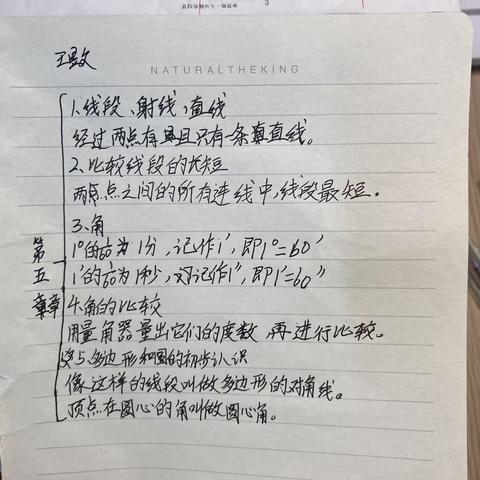 NATURALTHEKING
1、线段、射线、直线
经过两点有且只有一条直线。
2、比较线段的长短
两点之间的所有连线中,线段最短。
3、角
1°的1/60为1分,记作1′,即1°=60′
1′的1/60为1秒,记作1″,即1′=60″
第五章
4.角的比较
用量角器量出它们的度数,再进行比较。
5、多边形和圆的初步认识
像这样的线段叫做多边形的对角线。
顶点在圆心的角叫做圆心角。